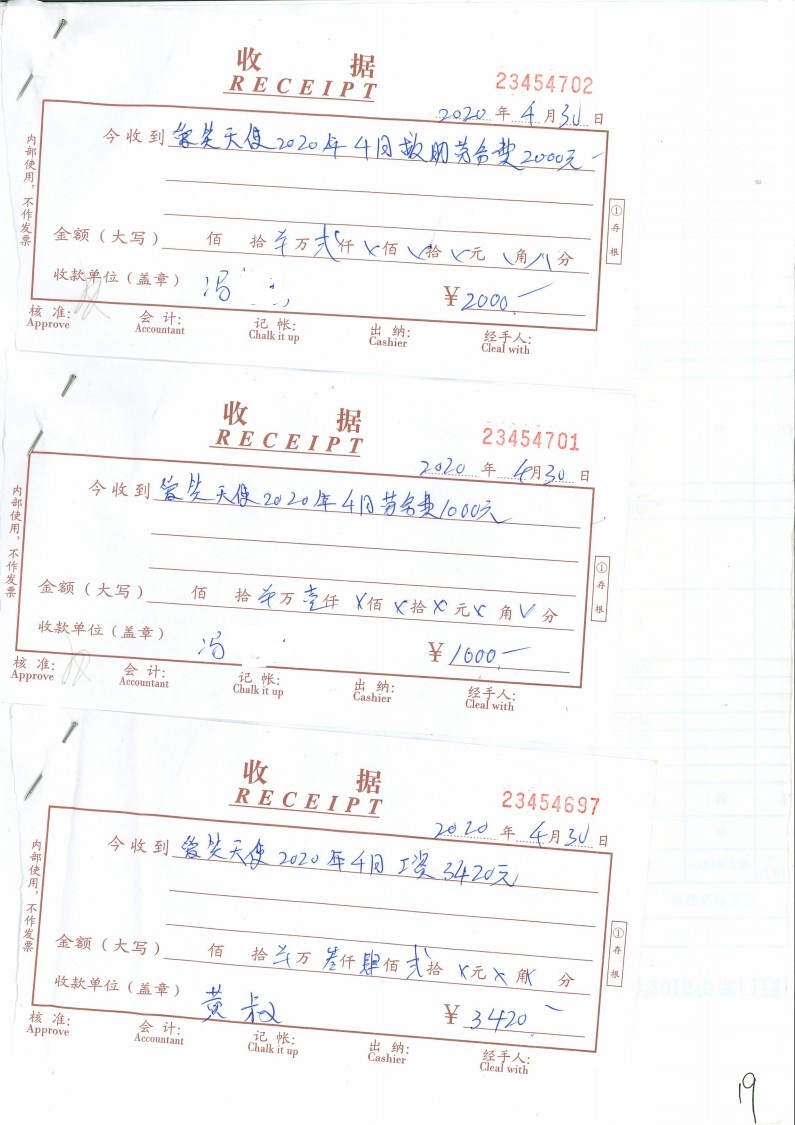 收 据
RECEIPT
23454702
2020 年 4 月 30 日
今收到 爱笑天使2020年4月 劳务费2000元
金额（大写） 佰 拾 万 贰仟 ×佰 ×拾 ×元 角 分
收款单位（盖章） 冯 ¥2000.—
核 准: 会 计: 记 帐: 出 纳: 经手人:
Approve Accountant Chalk it up Cashier Cleal with
内部使用，不作发票
①存根
收 据
RECEIPT
23454701
2020 年 4月30 日
今收到 爱笑天使2020年4月劳务费1000元
金额（大写） 佰 拾 万 壹仟 ×佰 ×拾 ×元× 角 分
收款单位（盖章） 冯 ¥1000.—
核 准: 会 计: 记 帐: 出 纳: 经手人:
Approve Accountant Chalk it up Cashier Cleal with
内部使用，不作发票
①存根
收 据
RECEIPT
23454697
2020 年 4月30 日
今收到 爱笑天使2020年4月工资3420元
金额（大写） 佰 拾 万 叁仟 肆佰 贰拾 ×元× 角× 分
收款单位（盖章） 黄 ¥3420.—
核 准: 会 计: 记 帐: 出 纳: 经手人:
Approve Accountant Chalk it up Cashier Cleal with
内部使用，不作发票
①存根
19